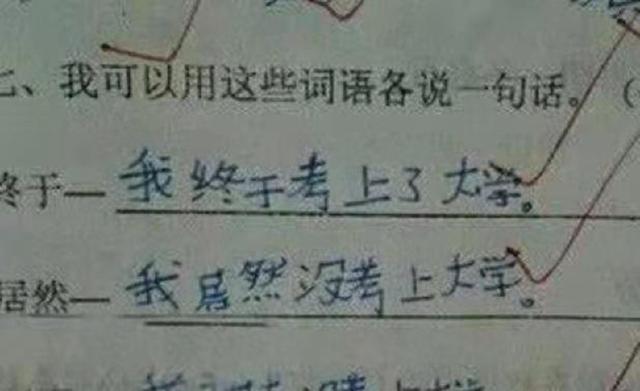 七、我可以用这些词语各说一句话。（
终于—我终于考上了大学。
居然—我居然没考上大学。